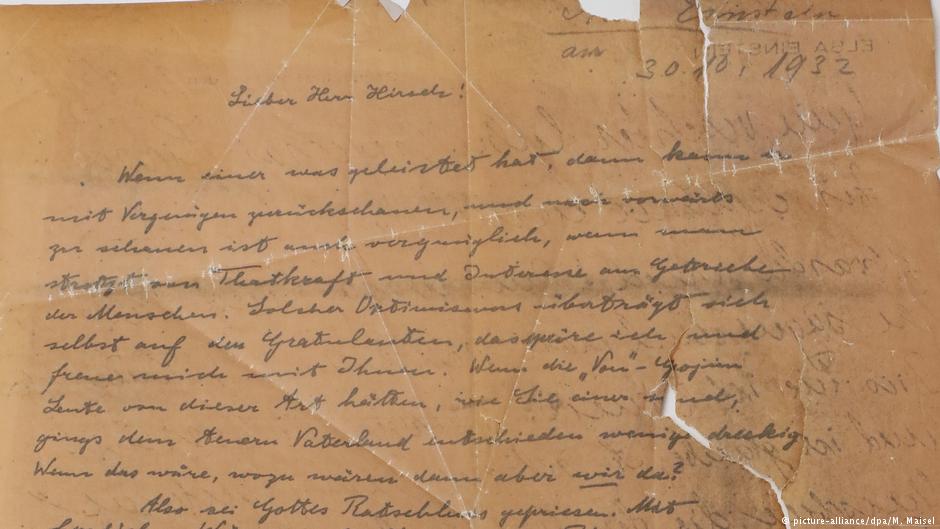 Einstein
ELSA EINSTEIN
am
30.10.1932
Lieber Herr Hirsch!
Wenn einer was geleistet hat, dann kann er
mit Vergnügen zurückschauen, und nach vorwärts
zu schauen ist auch vergnüglich, wenn man
strotzt von Thatkraft und Interesse am Getriebe
der Menschen. Solcher Optimismus überträgt sich
selbst auf den Gratulanten, das spüre ich und
freue mich mit Ihnen. Wenn die „Von"-Gojim
Leute von dieser Art hätten, wie Sie einer sind,
gings dem teuern Vaterland entschieden weniger dreckig
Wenn das wäre, wozu wären dann aber wir da?
Also sei Gottes Ratschluss gepriesen. Mit
picture-alliance/dpa/M. Maisel